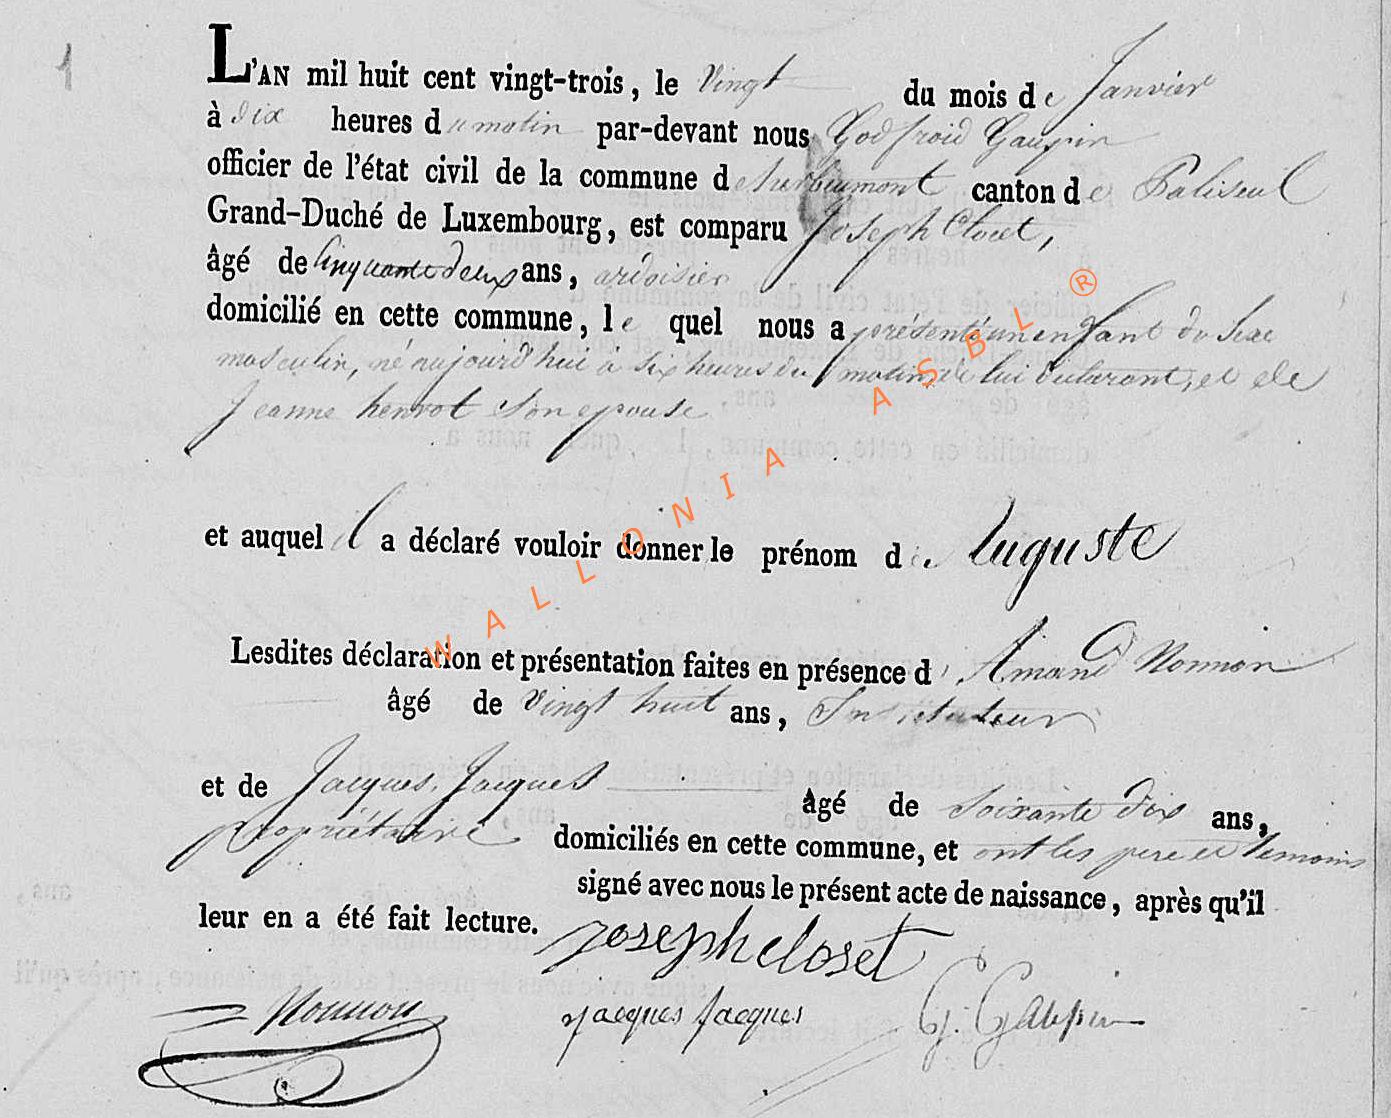 1
L'AN mil huit cent vingt-trois, le Vingt du mois de Janvier
à dix heures du matin par-devant nous Godfroid Gaupin
officier de l'état civil de la commune de herbeumont canton de Paliseul
Grand-Duché de Luxembourg, est comparu Joseph Closet,
âgé de Cinquante deux ans, ardoisier
domicilié en cette commune, le quel nous a présenté un enfant du Sexe
masculin, né aujourd'hui à six heures du matin de lui declarant, et de
Jeanne henrot Son epouse
et auquel il a déclaré vouloir donner le prénom de Auguste
Lesdites déclaration et présentation faites en présence d'Amand Nonnon
âgé de Vingt huit ans, Instituteur
et de Jacques Jacques âgé de Soixante dix ans,
propriétaire domiciliés en cette commune, et ont les pere et temoins
signé avec nous le présent acte de naissance, après qu'il
leur en a été fait lecture.
joseph closet
Nonnon jacques jacques G. Gaupin
WALLONIA ASBL ®